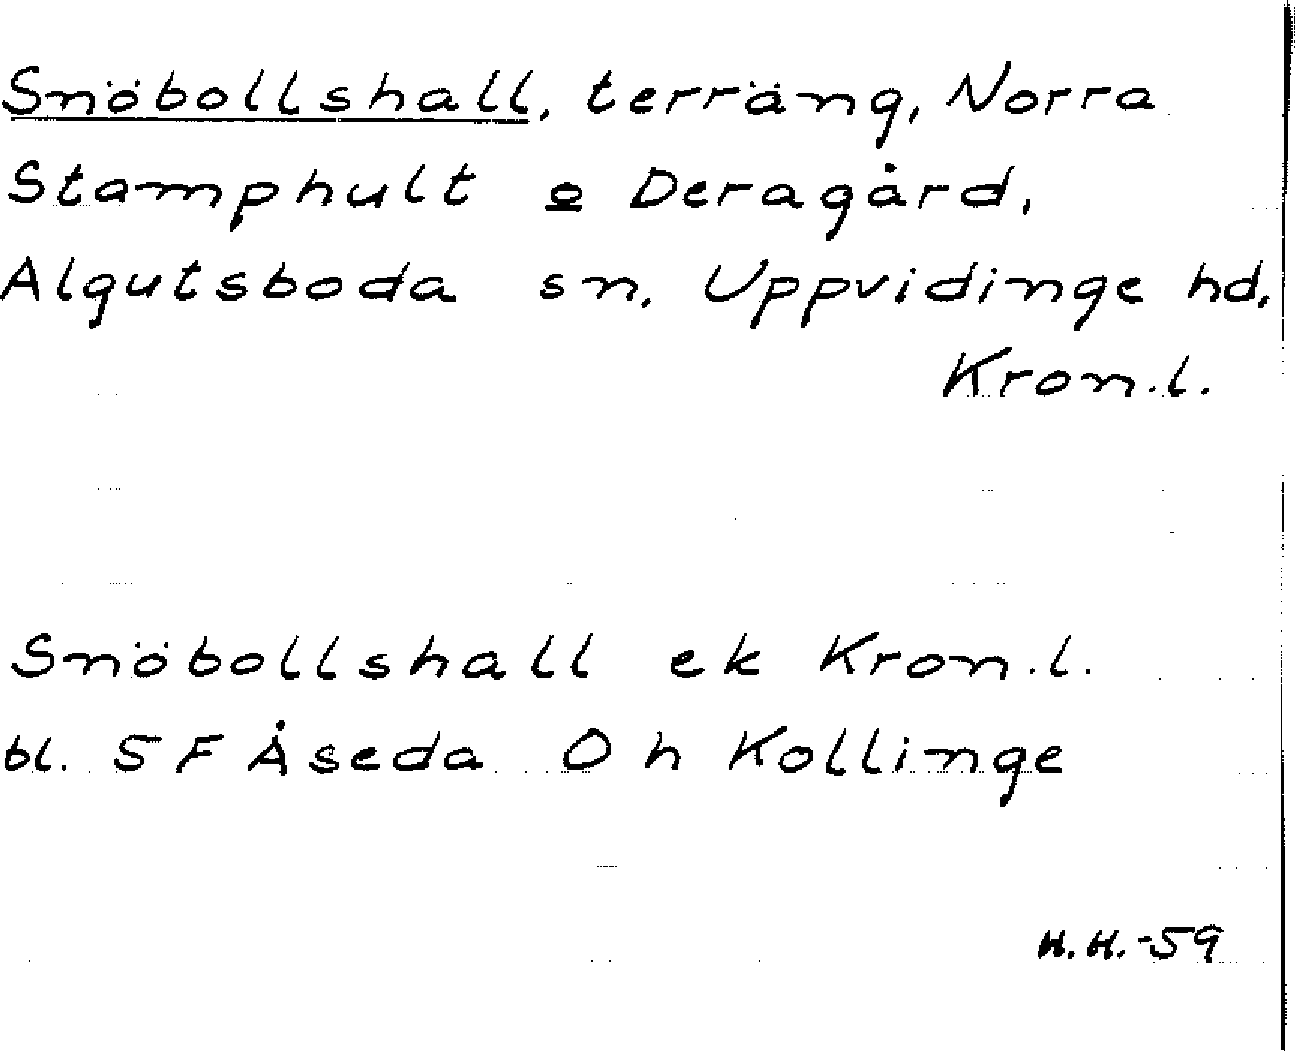 Snöbollshall, terräng, Norra
Stamphult o Deragård,
Algutsboda sn. Uppvidinge hd.
Kron.l.
Snöbollshall ek Kron.l.
bl. 5 F Åseda O h Kollinge
H.H.-59